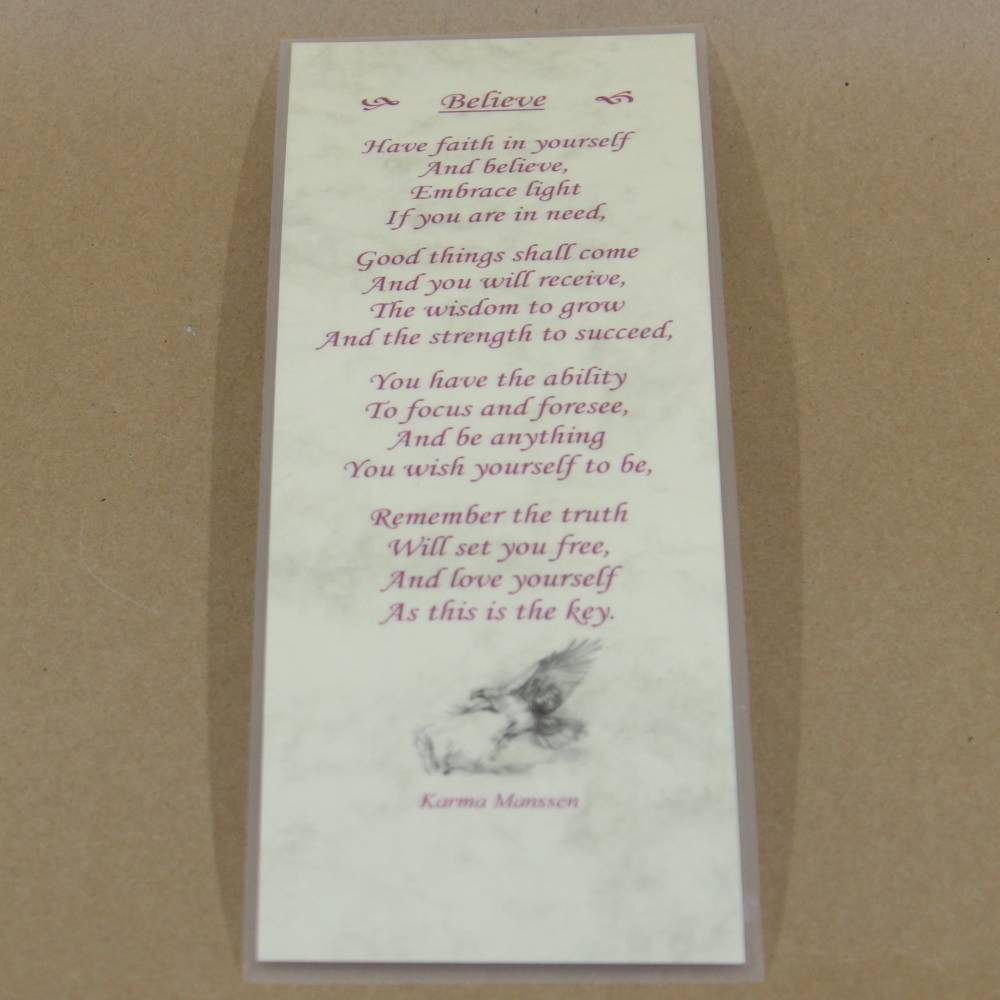 Believe
Have faith in yourself
And believe,
Embrace light
If you are in need,
Good things shall come
And you will receive,
The wisdom to grow
And the strength to succeed,
You have the ability
To focus and foresee,
And be anything
You wish yourself to be,
Remember the truth
Will set you free,
And love yourself
As this is the key.
Karma Manssen